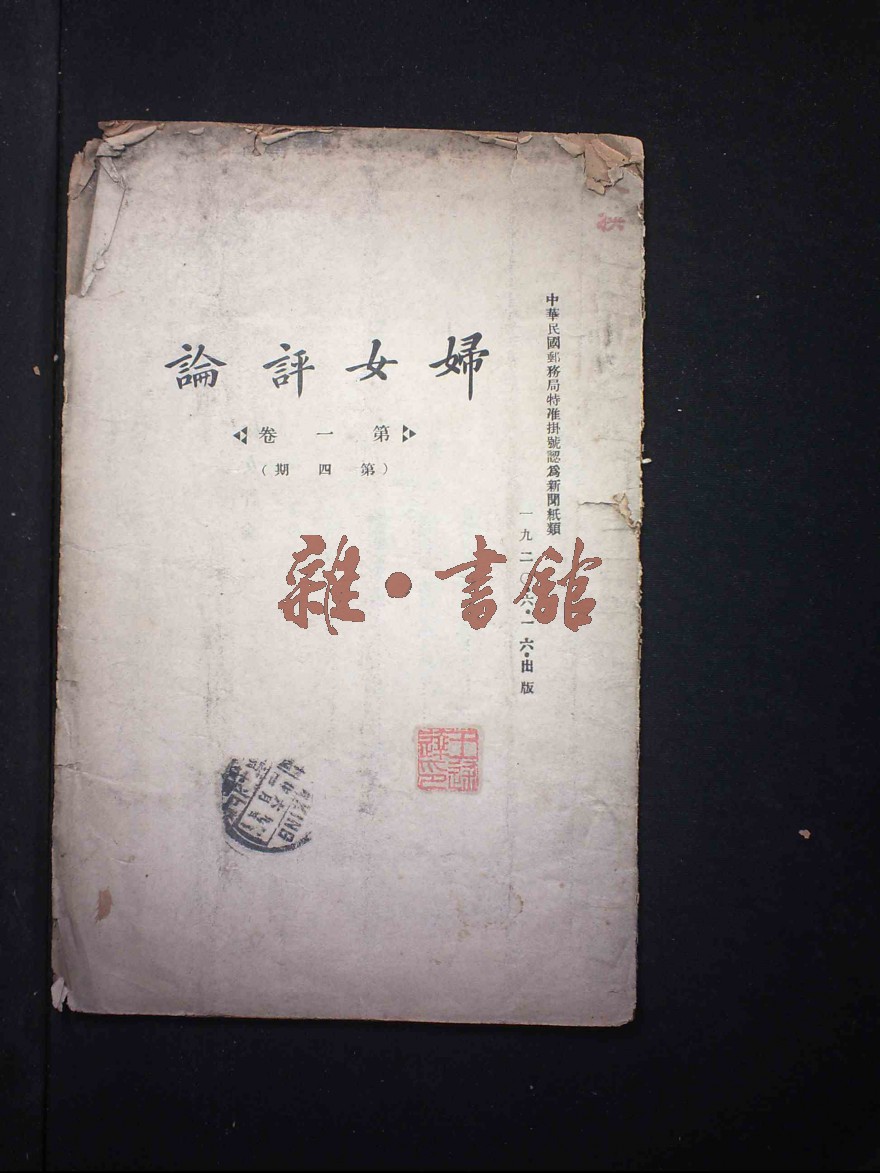 中華民國郵務局特准掛號認爲新聞紙類
一九二〇・六・一六・出版
婦女評論
第一卷
(第四期)
雜・書館
KING